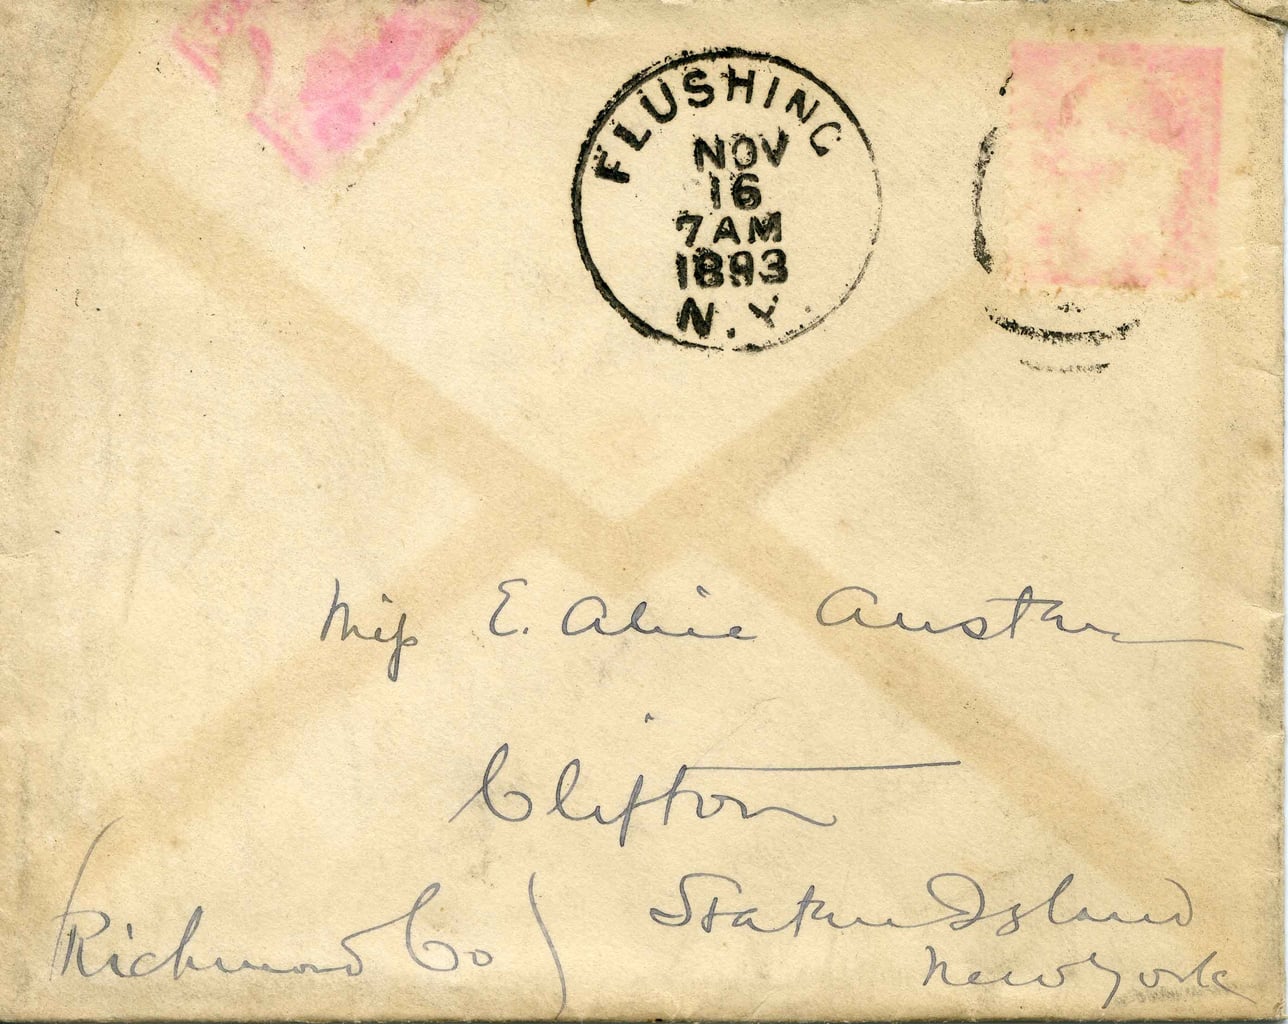 FLUSHING
NOV
16
7 AM
1893
N.Y.
Miss E. Alice Austen
Clifton
Staten Island
(Richmond Co)
New York